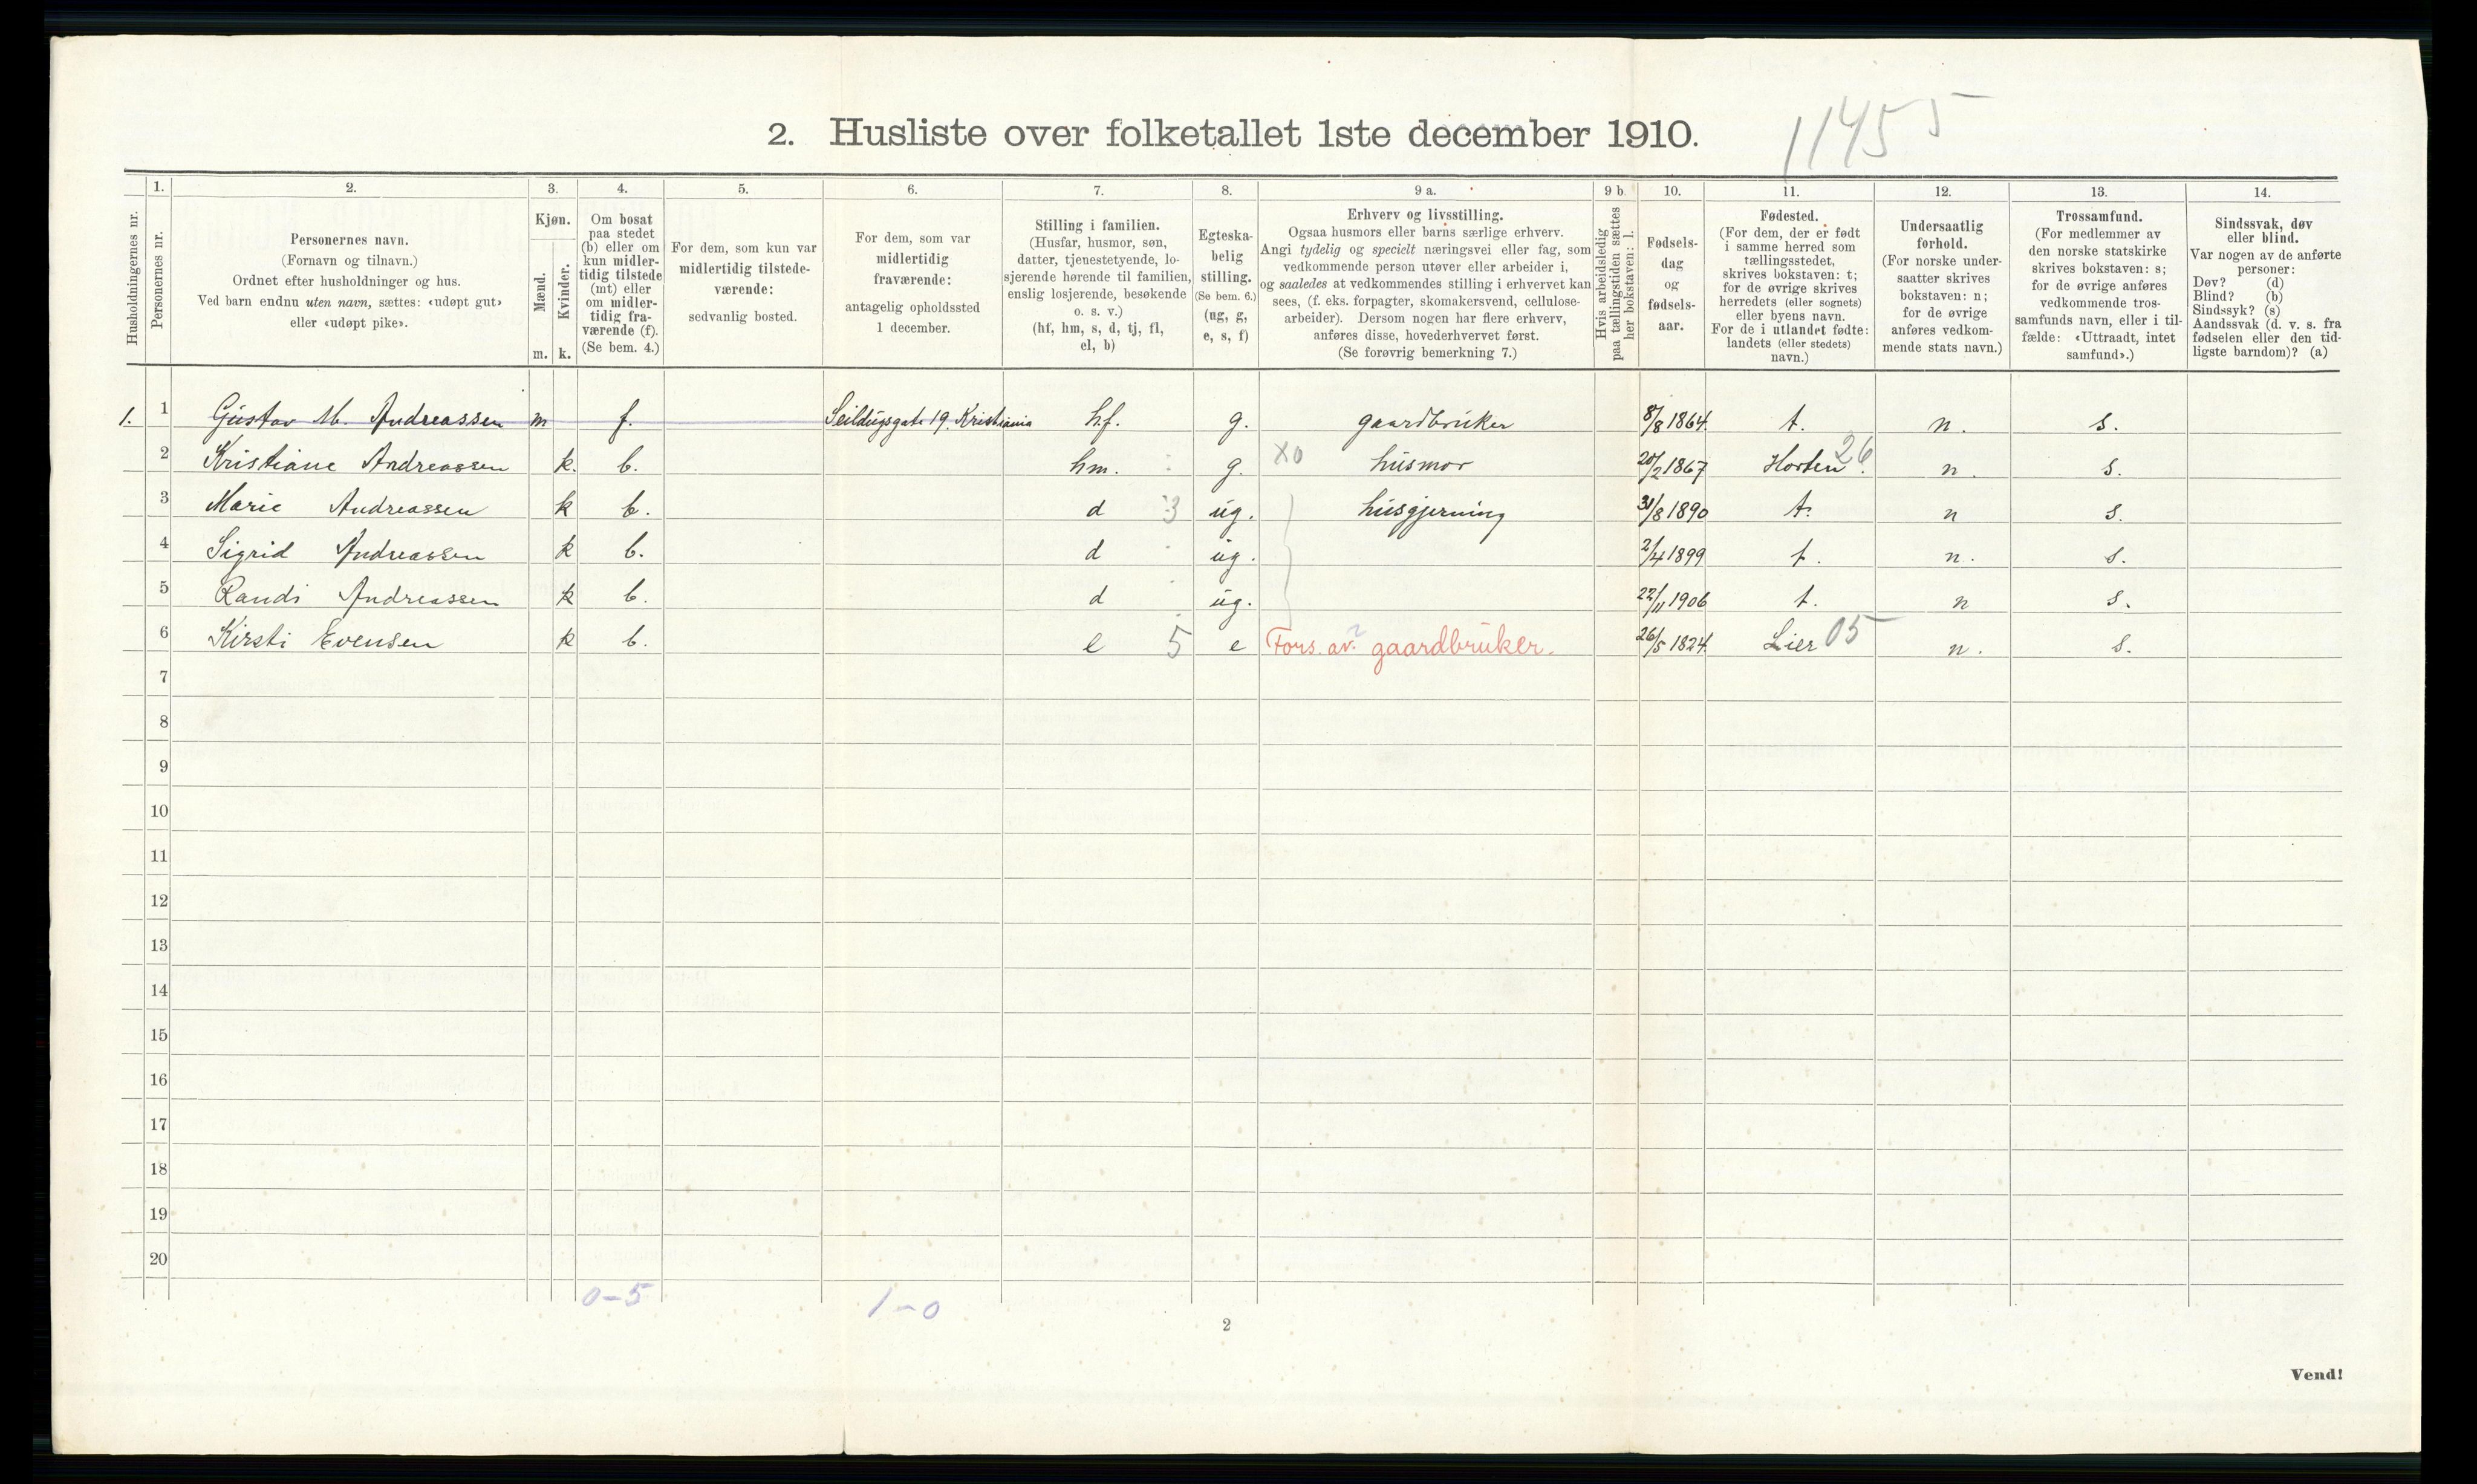 2. Husliste over folketallet 1ste december 1910.
11455
1. 2. 3. 4. 5. 6. 7. 8. 9 a. 9 b. 10. 11. 12. 13. 14.
Husholdningernes nr.
Personernes nr.
Personernes navn.
(Fornavn og tilnavn.)
Ordnet efter husholdninger og hus.
Ved barn endnu uten navn, sættes: «udøpt gut»
eller «udøpt pike».
Kjøn.
Mænd.
Kvinder.
m. k.
Om bosat
paa stedet
(b) eller om
kun midler-
tidig tilstede
(mt) eller
om midler-
tidig fra-
værende (f).
(Se bem. 4.)
For dem, som kun var
midlertidig tilstede-
værende:
sedvanlig bosted.
For dem, som var
midlertidig
fraværende:
antagelig opholdssted
1 december.
Stilling i familien.
(Husfar, husmor, søn,
datter, tjenestetyende, lo-
sjerende hørende til familien,
enslig losjerende, besøkende
o. s. v.)
(hf, hm, s, d, tj, fl,
el, b)
Egteska-
belig
stilling.
(Se bem. 6.)
(ug, g,
e, s, f)
Erhverv og livsstilling.
Ogsaa husmors eller barns særlige erhverv.
Angi tydelig og specielt næringsvei eller fag, som
vedkommende person utøver eller arbeider i,
og saaledes at vedkommendes stilling i erhvervet kan
sees, (f. eks. forpagter, skomakersvend, cellulose-
arbeider). Dersom nogen har flere erhverv,
anføres disse, hovederhvervet først.
(Se forøvrig bemerkning 7.)
Hvis arbeidsledig
paa tællingstiden sættes
her bokstaven: l.
Fødsels-
dag
og
fødsels-
aar.
Fødested.
(For dem, der er født
i samme herred som
tællingsstedet,
skrives bokstaven: t;
for de øvrige skrives
herredets (eller sognets)
eller byens navn.
For de i utlandet fødte:
landets (eller stedets)
navn.)
Undersaatlig
forhold.
(For norske under-
saatter skrives
bokstaven: n;
for de øvrige
anføres vedkom-
mende stats navn.)
Trossamfund.
(For medlemmer av
den norske statskirke
skrives bokstaven: s;
for de øvrige anføres
vedkommende tros-
samfunds navn, eller i til-
fælde: «Uttraadt, intet
samfund».)
Sindssvak, døv
eller blind.
Var nogen av de anførte
personer:
Døv? (d)
Blind? (b)
Sindssyk? (s)
Aandssvak (d. v. s. fra
fødselen eller den tid-
ligste barndom)? (a)
1. 1 Gustav M. Andreassen m f. Seildugsgate 19. Kristiania h.f. g. gaardbruker 8/8 1864. t. n. s.
2 Kristiane Andreassen k. b. hm. g. xo husmor 20/2 1867 Horten. 26 n. s.
3 Marie Andreassen k b. d 3 ug. husgjerning 31/8 1890 t. n s.
4 Sigrid Andreassen k b. d ug. 2/4 1899 t. n. s.
5 Randi Andreassen k b. d ug. 22/11 1906 t. n s.
6 Kirsti Evensen k b. e 5 e Fors. av gaardbruker. 26/5 1824. Lier 05 n. s.
7
8
9
10
11
12
13
14
15
16
17
18
19
20
0-5 1-0
2
Vend!